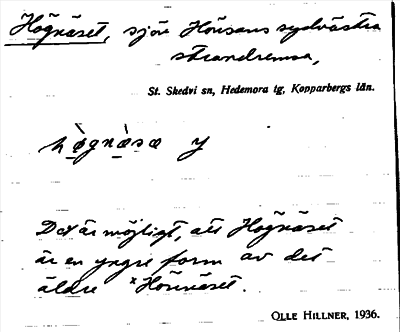 Högnäset, sjön Hönsans sydvästra
strandremsa,
St. Skedvi sn, Hedemora tg, Kopparbergs län.
hǿgnä̀sæ y
Det är möjligt, att Högnäset
är en yngre form av det
äldre *Hönnäset.
OLLE HILLNER, 1936.